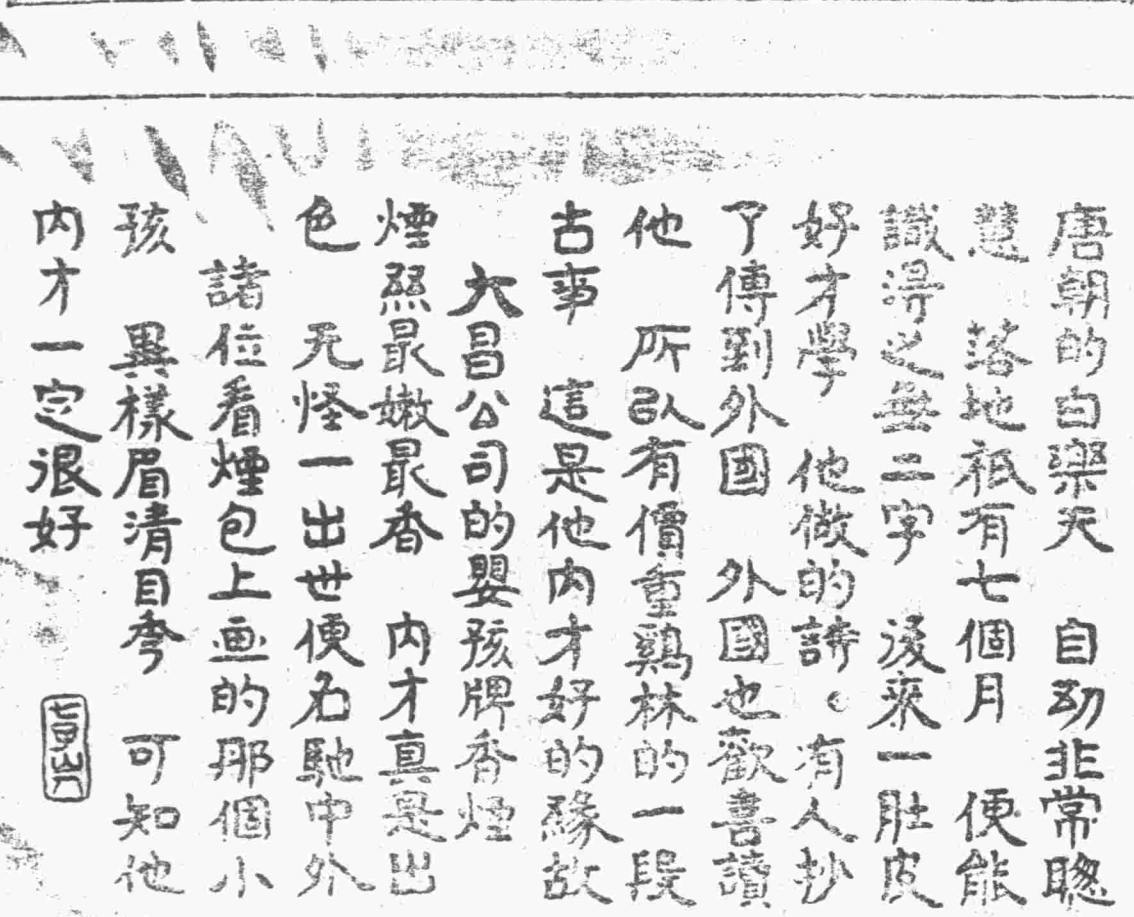 唐朝的白樂天　自幼非常聰
慧　落地祇有七個月　便能
識得之無二字　後來一肚皮
好才學　他做的詩。有人抄
了傳到外國　外國也歡喜讀
他　所以有價重鷄林的一段
古事　這是他內才好的緣故
大昌公司的嬰孩牌香煙
煙絲最嫩最香　內才真是出
色　无怪一出世便名馳中外
諸位看煙包上画的那個小
孩　異樣眉清目秀　可知他
內才一定很好